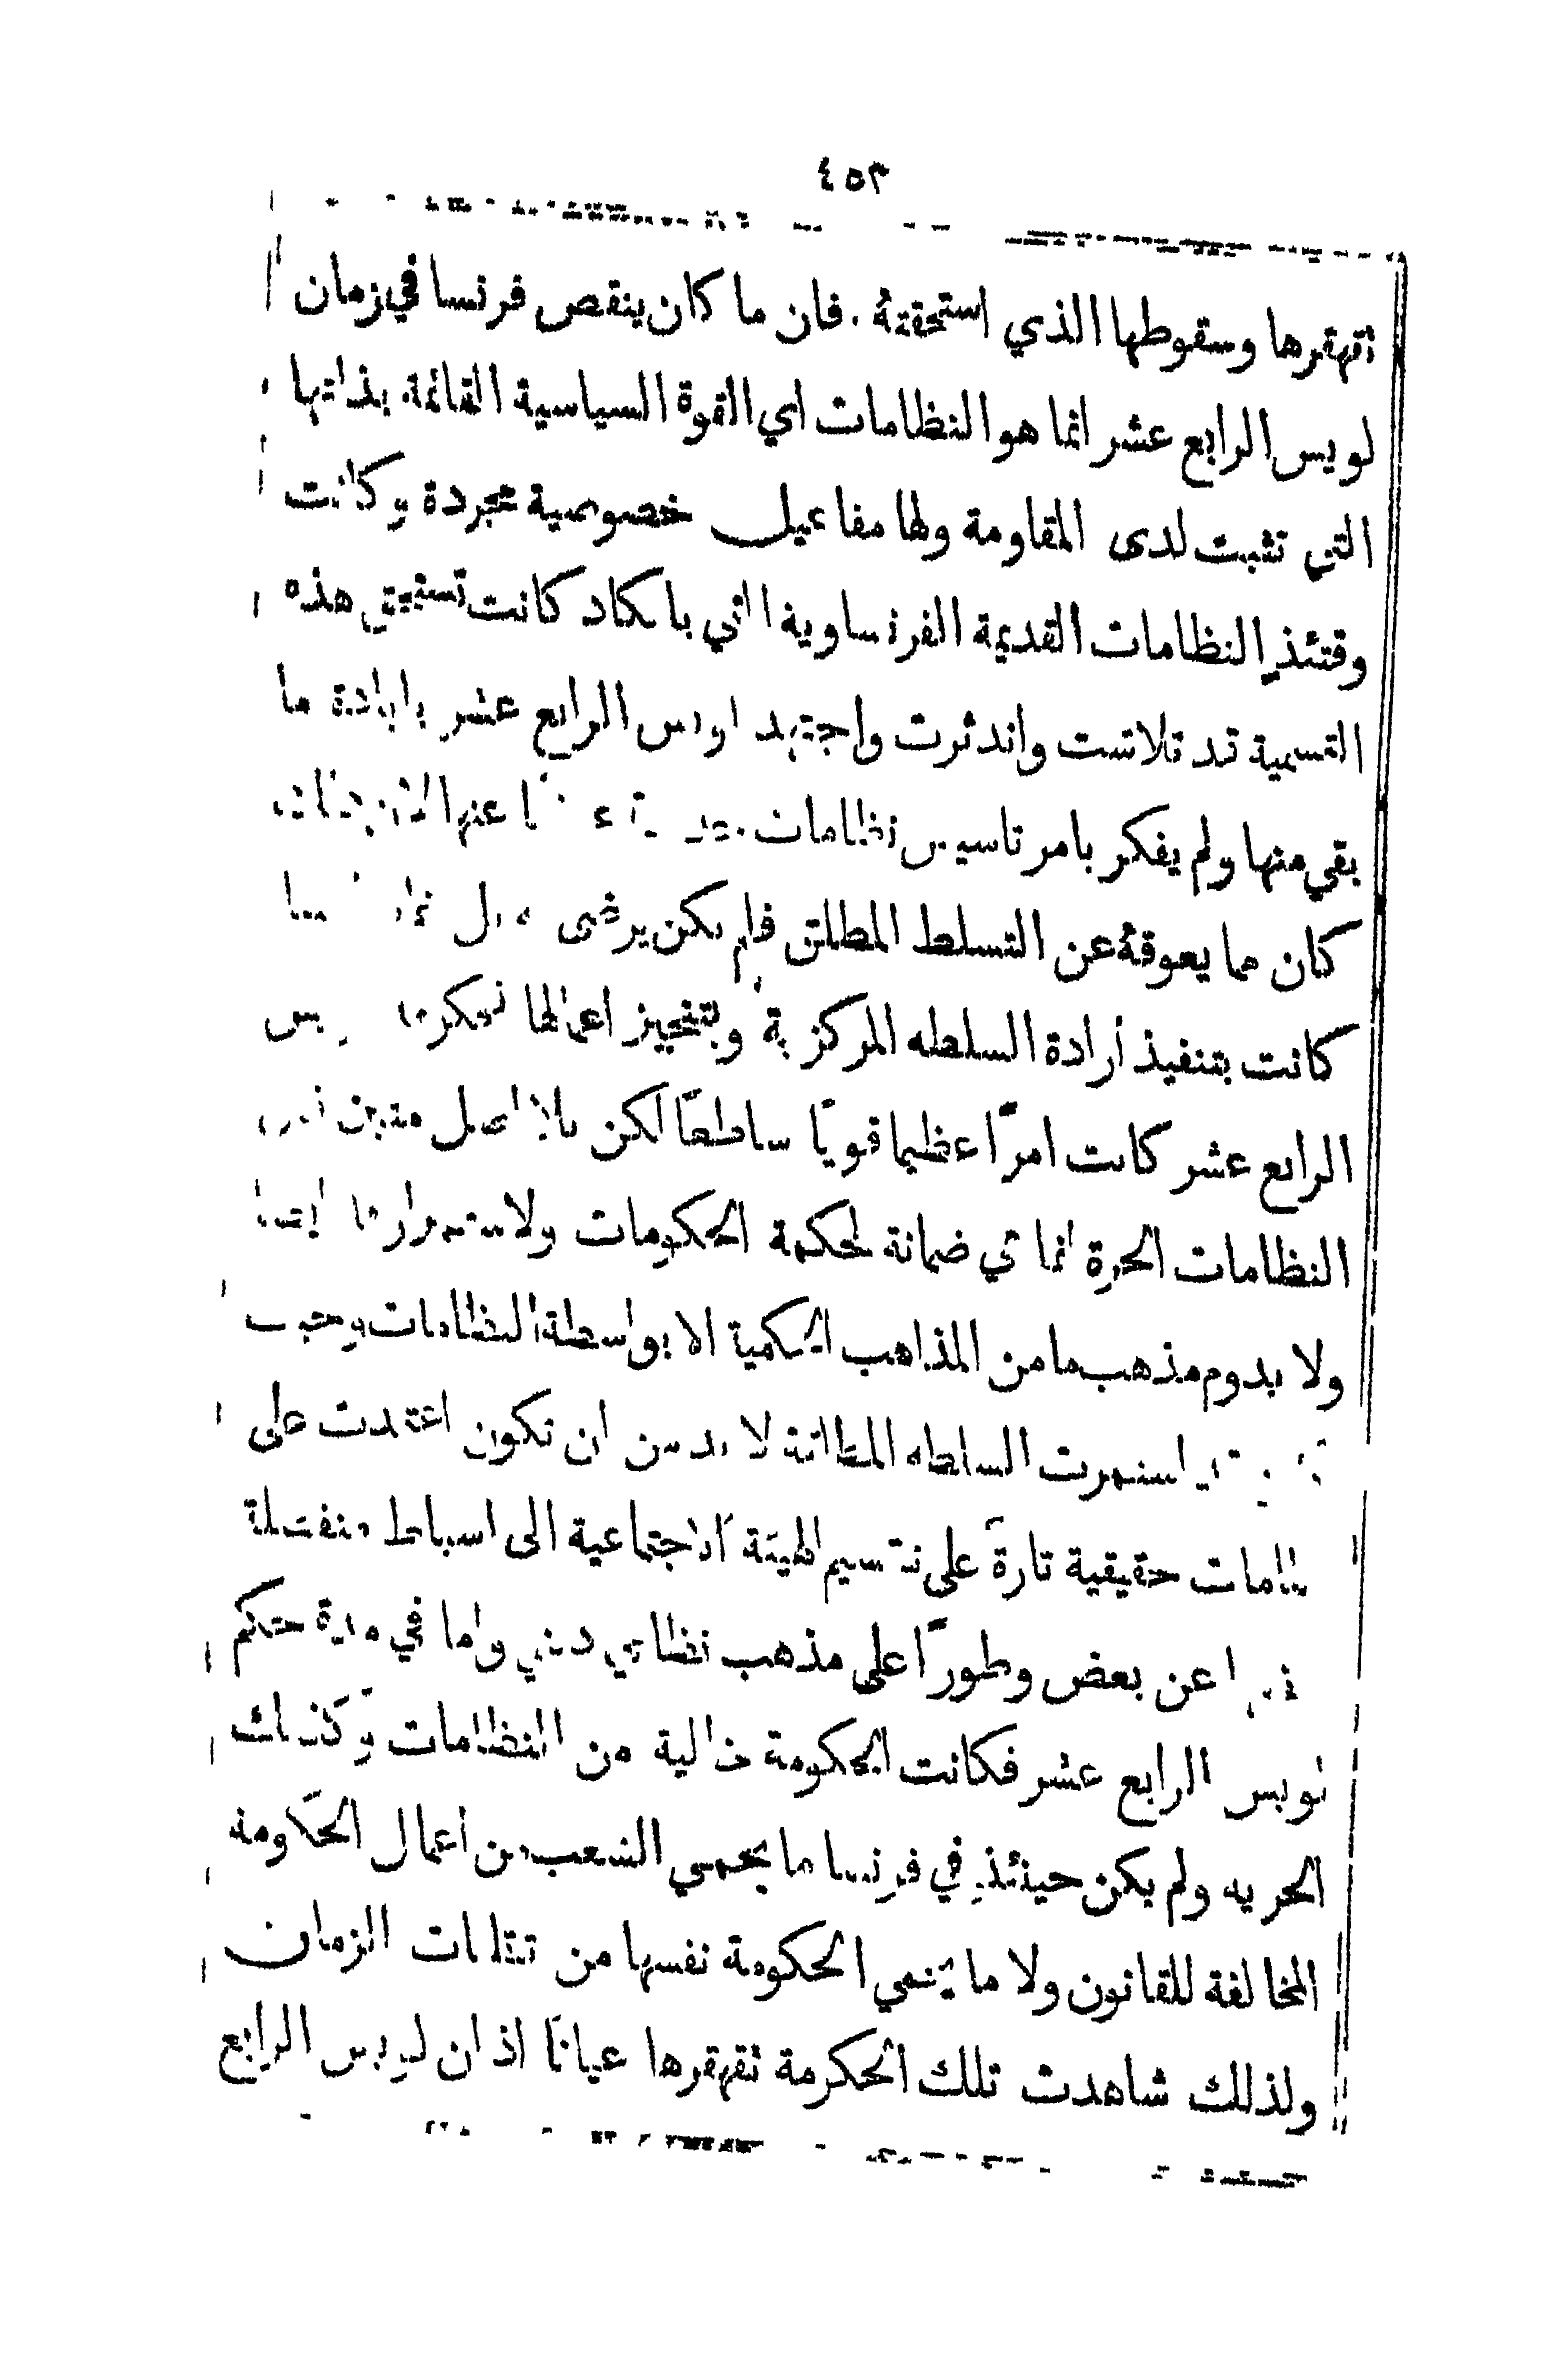 ٤٥٣
تقهقرها وسقوطها الذي استحقتهُ . فان ما كان ينقص فرنسا في زمان
لويس الرابع عشر انما هو النظامات اي القوة السياسية القائمة بذاتها
التي تثبت لدى المقاومة ولها مفاعيل خصوصية مجردة وكانت
وقتئذٍ النظامات القديمة الفرنساوية التي بالكاد كانت تستحق هذه
التسمية قد تلاشت واندثرت واجتهد لويس الرابع عشر بابادة ما
بقي منها ولم يفكر بامر تاسيس نظامات عنها
كان مما يعوقهُ عن التسلط المطلق فلم يكن يرضى
كانت بتنفيذ ارادة السلطه المركزية وبتنجيز اعمالها
الرابع عشر كانت امرًا عظيما قويًا ساطعًا لكن بلا اصل متين
النظامات الحرة انما هي ضمانة لحكمة الحكومات ولاستمرارها ايضا
ولا يدوم مذهب ما من المذاهب الحكمية الا بواسطة النظامات وحيث
استمرت السلطه المطلقة لا بد من ان تكون اعتمدت على
حقيقية تارةً على تقسيم الهيئة الاجتماعية الى اسباط منفصلة
عن بعض وطورًا على مذهب نظامي ديني واما في مدة حكم
لويس الرابع عشر فكانت الحكومة خالية من النظامات وكذلك
الحريه ولم يكن حينئذٍ في فرنسا ما يحمي الشعب من اعمال الحكومة
المخالفة للقانون ولا ما يحمي الحكومة نفسها من تقلبات الزمان
ولذلك شاهدت تلك الحكومة تقهقرها عيانًا اذ ان لويس الرابع